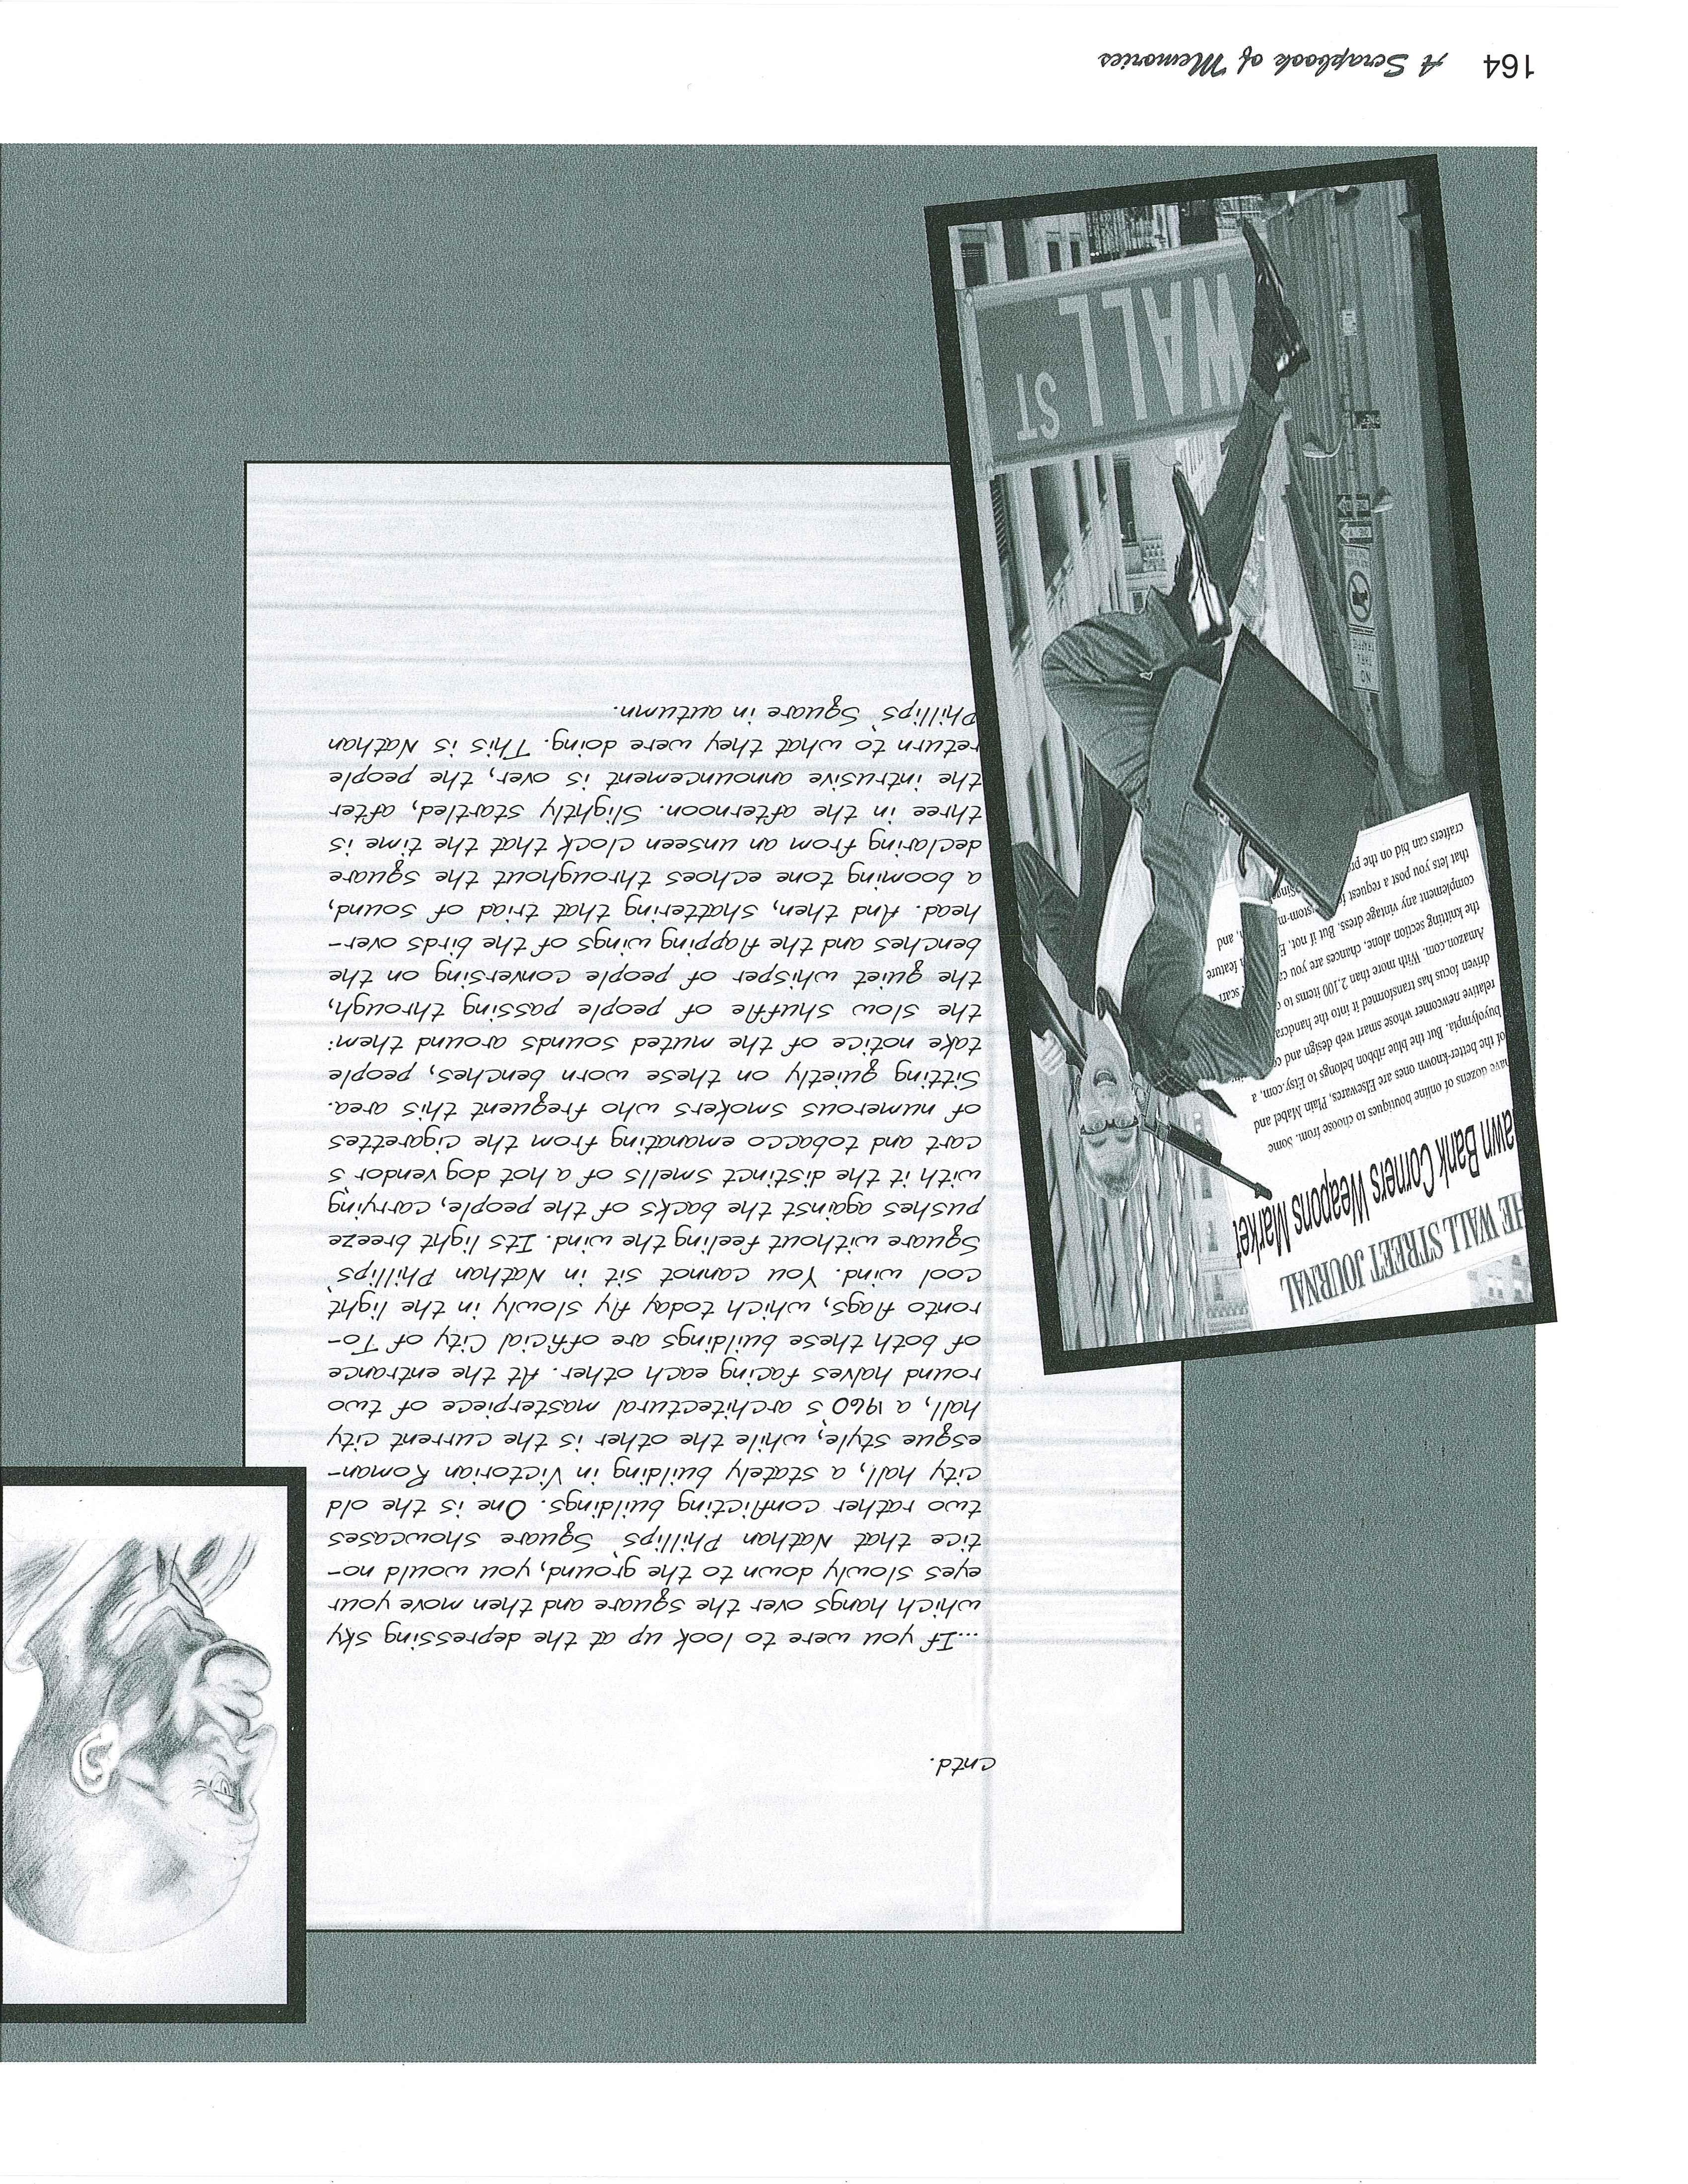 cntd.
...If you were to look up at the depressing sky
which hangs over the square and then move your
eyes slowly down to the ground, you would no-
tice that Nathan Phillips' Square showcases
two rather conflicting buildings. One is the old
city hall, a stately building in Victorian Roman-
esque style, while the other is the current city
hall, a 1960's architectural masterpiece of two
round halves facing each other. At the entrance
of both these buildings are official City of To-
ronto flags, which today fly slowly in the light
cool wind. You cannot sit in Nathan Phillips'
Square without feeling the wind. Its light breeze
pushes against the backs of the people, carrying
with it the distinct smells of a hot dog vendor's
cart and tobacco emanating from the cigarettes
of numerous smokers who frequent this area.
Sitting quietly on these worn benches, people
take notice of the muted sounds around them:
the slow shuffle of people passing through,
the quiet whisper of people conversing on the
benches and the flapping wings of the birds over-
head. And then, shattering that triad of sound,
a booming tone echoes throughout the square
declaring from an unseen clock that the time is
three in the afternoon. Slightly startled, after
the intrusive announcement is over, the people
return to what they were doing. This is Nathan
Phillips' Square in autumn.
HE WALL STREET JOURNAL
awn Bank Corners Weapons Market
have dozens of online boutiques to choose from. Some
of the better-known ones are Elsewares, Plain Mabel and
buyolympia. But the blue ribbon belongs to Etsy.com, a
relative newcomer whose smart web design and
driven focus has transformed it into the
Amazon.com. With more than 2,100 items to
the knitting section alone, chances are you feature
complement any vintage dress. But if not, and
that lets you post a request
crafters can bid on the
NO
THRU
TRAFFIC
WALL ST
164 A Scrapbook of Memories